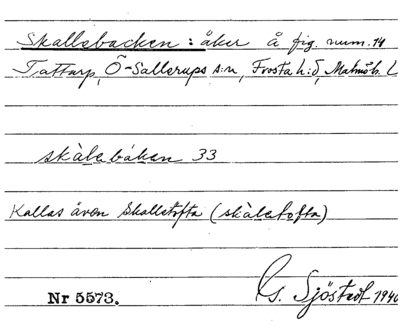 Skallebacken: åker å fig. num. 14
Tattarp, Ö-Sallerups s:n, Frosta h:d, Malmöh. L
skàlebáken 33
Kallas även Skalletofta (skàletofta)
Nr 5573. G. Sjöstedt 1940